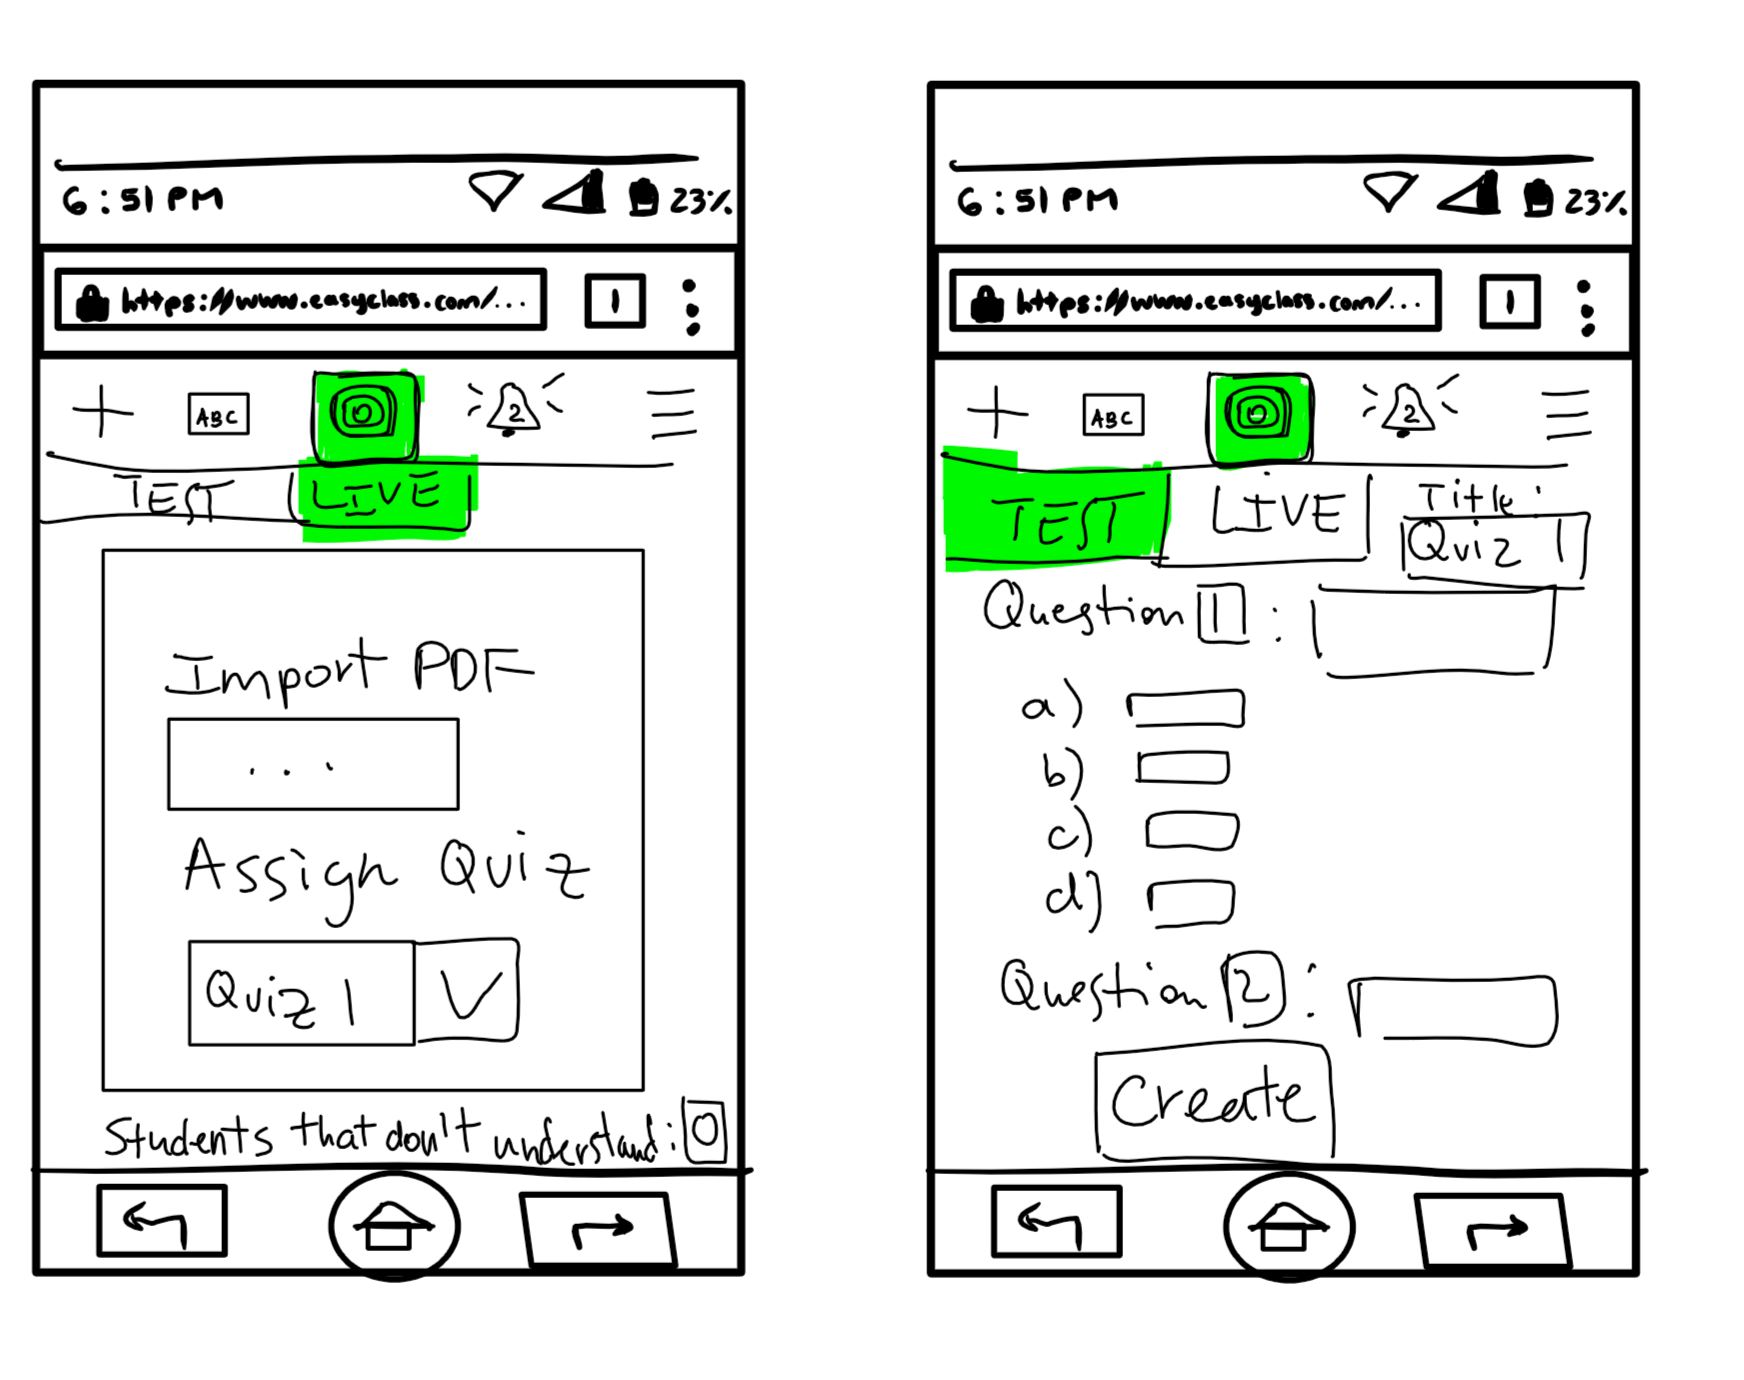 6:51 PM 23%
https://www.easyclass.com/... 1
ABC 2
TEST LIVE
Import PDF
...
Assign Quiz
Quiz 1
Students that don't understand: 0
6:51 PM 23%
https://www.easyclass.com/... 1
ABC 2
TEST LIVE Title:
Quiz 1
Question 1:
a)
b)
c)
d)
Question 2:
Create